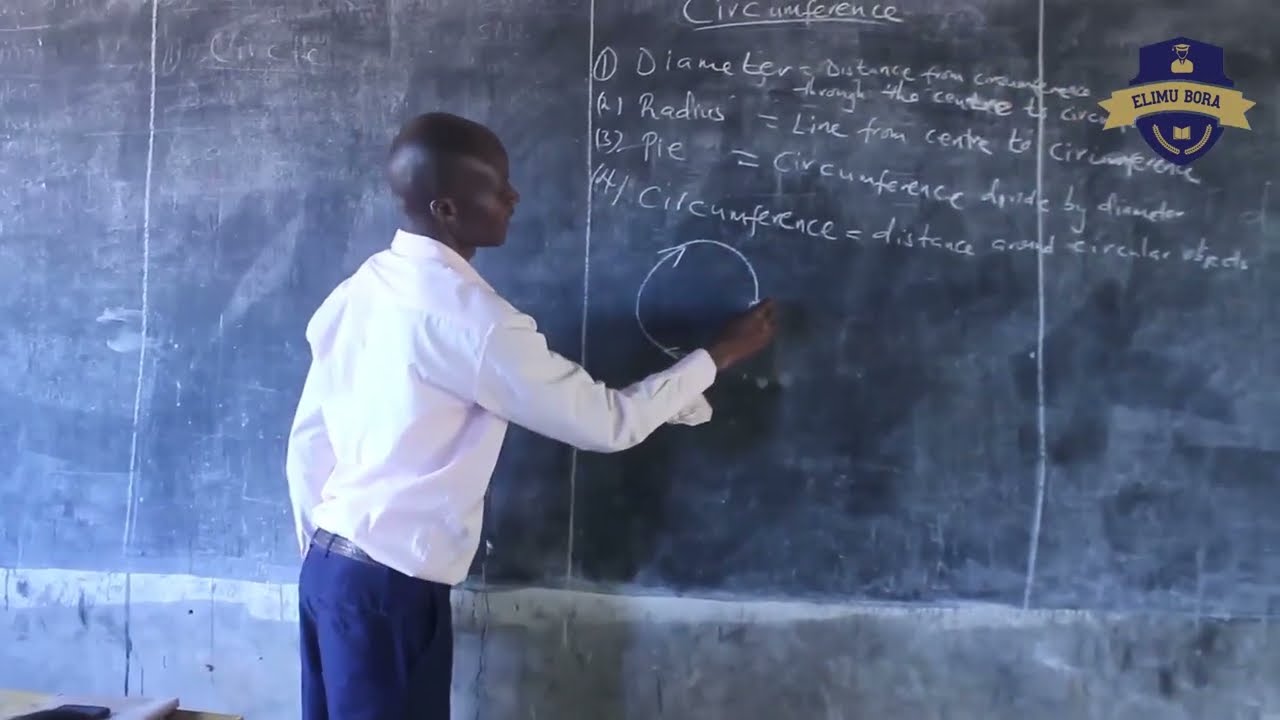 Circumference
(1) Diameter = Distance from circumference
through the centre to
(2) Radius = Line from centre to Circumference
(3) Pie = Circumference divide by diameter
(4) Circumference = distance around circular objects
Circle
ELIMU BORA